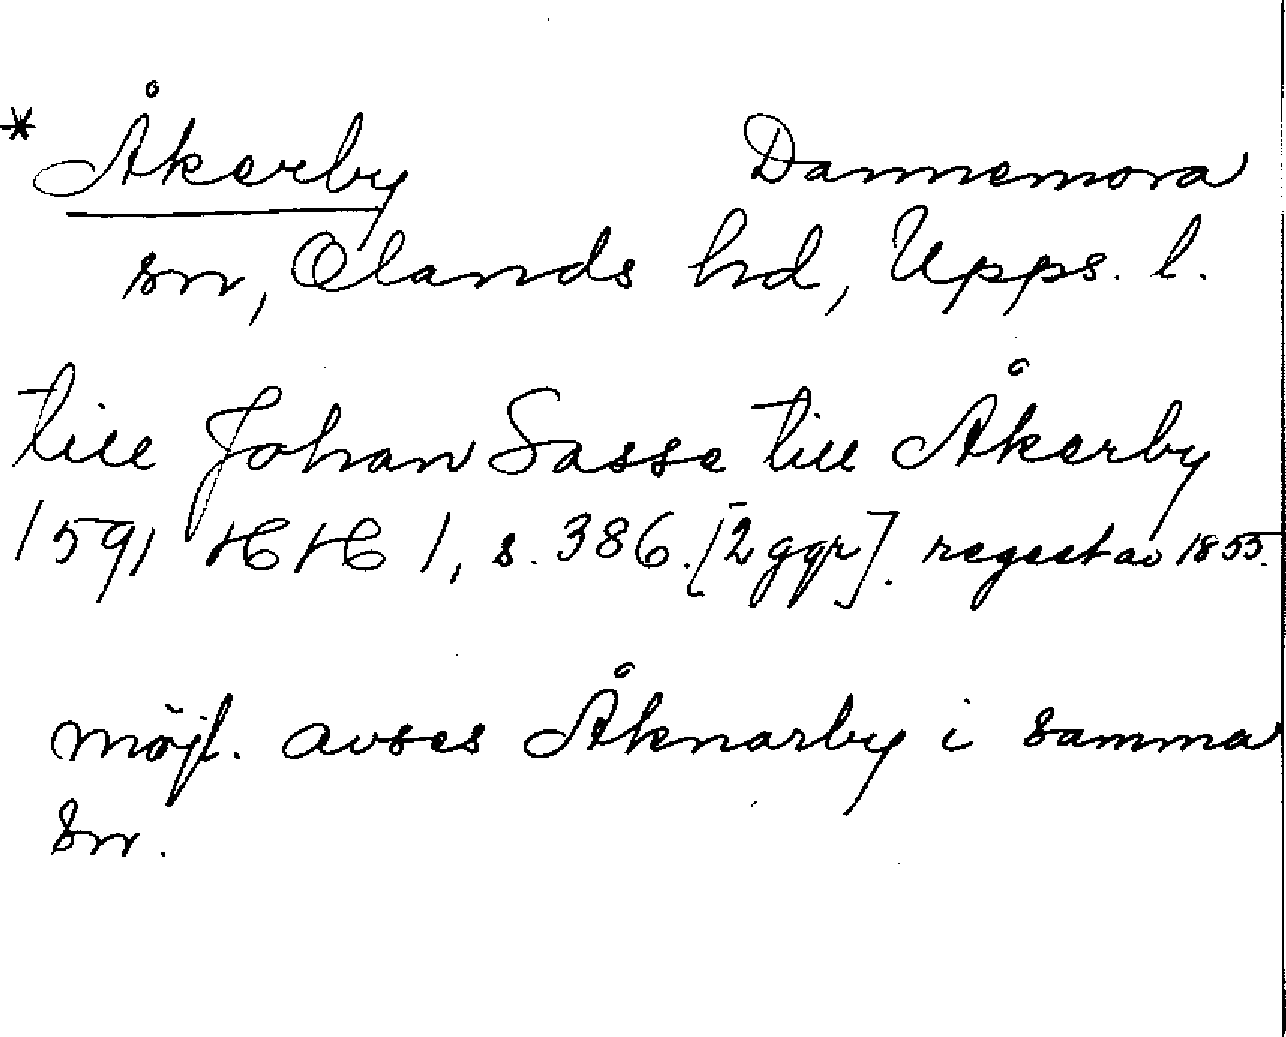 * Åkerby Dannemora
sn, Olands hd, Upps. l.
till Johan Sasse till Åkerby
1591 HH 1, s. 386. [2 ggr]. regest av 1855.
möjl. avses Åknarby i samma
sn.